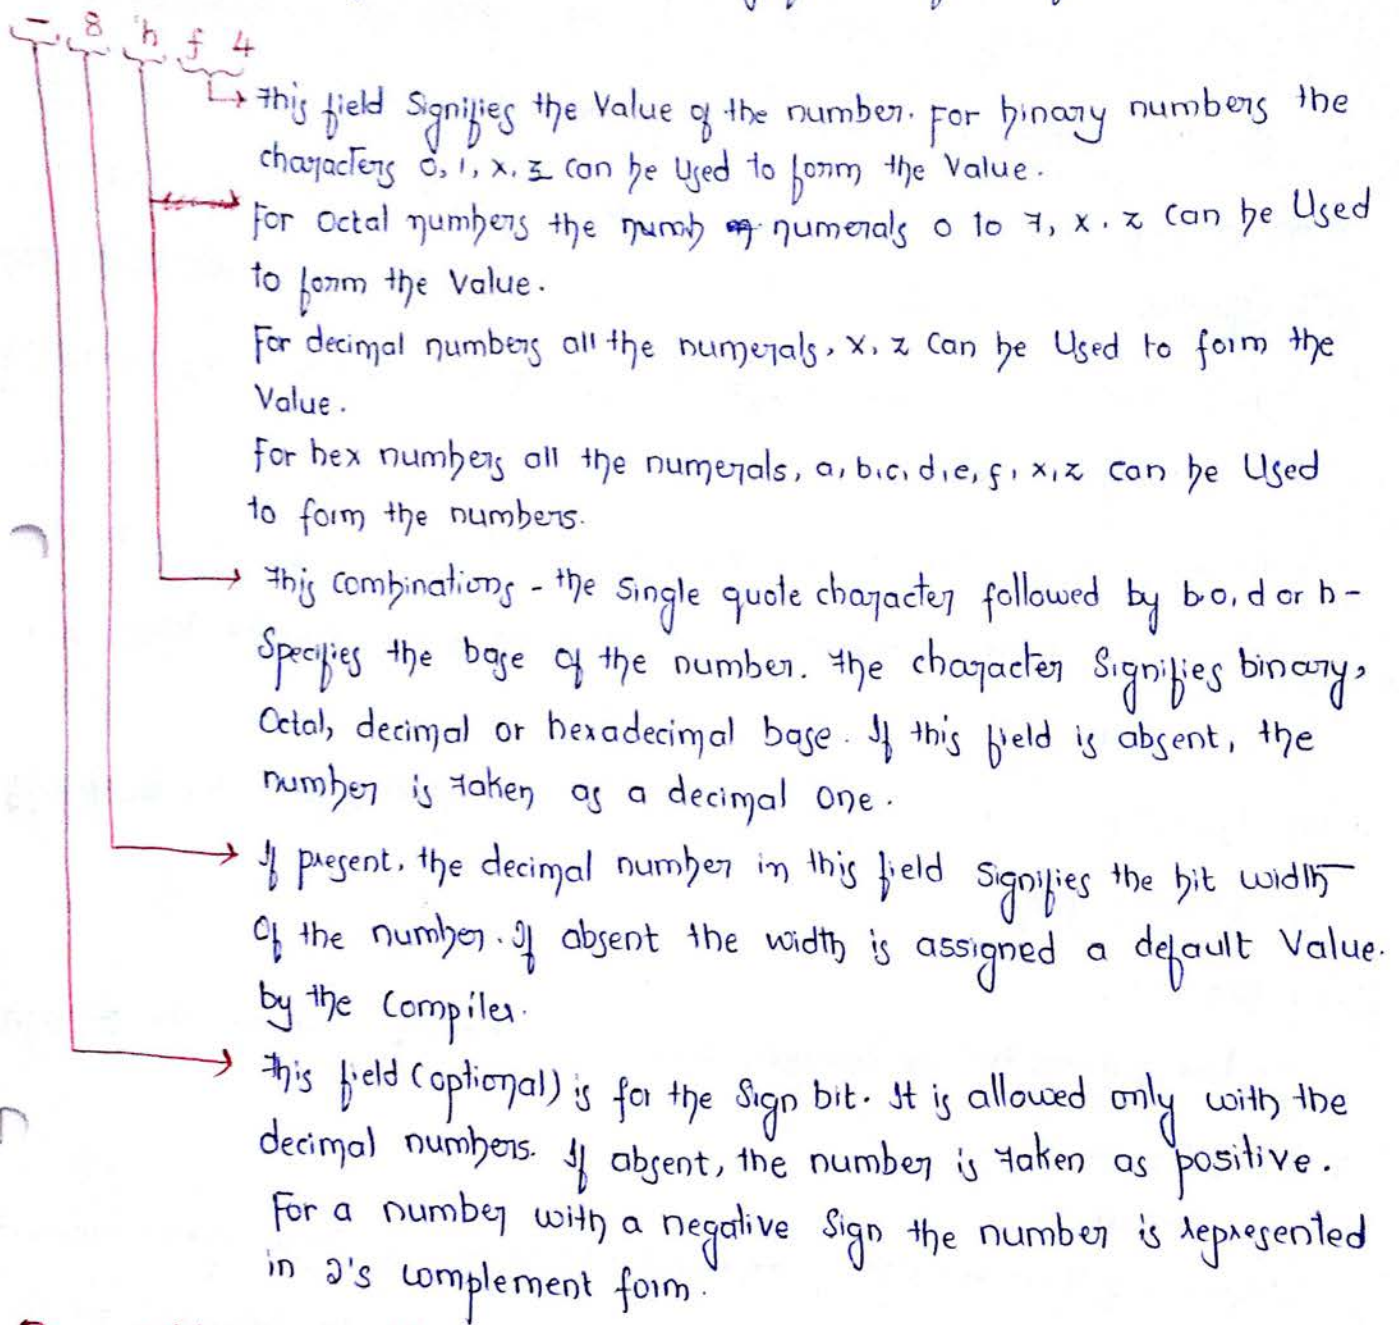 - 8 'h f 4
This field Signifies the Value of the number. For binary numbers the
characters 0, 1, x, z can be Used to form the Value.
For Octal numbers the numb of numerals 0 to 7, x, z can be Used
to form the Value.
For decimal numbers all the numerals, x, z Can be Used to form the
Value.
For hex numbers all the numerals, a, b, c, d, e, f, x, z can be Used
to form the numbers.
This combinations - the Single quote character followed by b, o, d or h -
Specifies the base of the number. The character Signifies binary,
Octal, decimal or hexadecimal base. If this field is absent, the
number is taken as a decimal one.
If present, the decimal number in this field Signifies the bit width
Of the number. If absent the width is assigned a default Value.
by the Compiler.
This field (optional) is for the Sign bit. It is allowed only with the
decimal numbers. If absent, the number is taken as positive.
For a number with a negative Sign the number is represented
in 2's complement form.